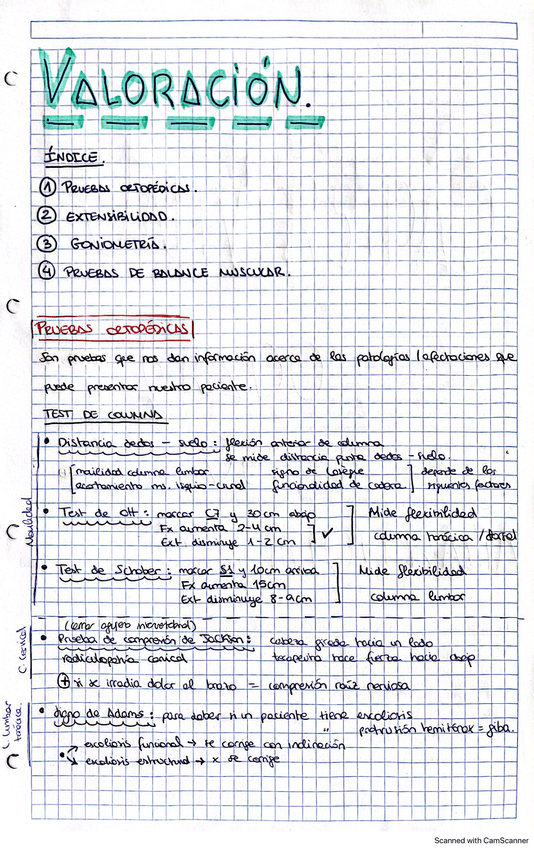 VALORACIÓN.
ÍNDICE.
① PRUEBAS ORTOPÉDICAS.
② EXTENSIBILIDAD.
③ GONIOMETRÍA.
④ PRUEBAS DE BALANCE MUSCULAR.
PRUEBAS ORTOPÉDICAS
Son pruebas que nos dan información acerca de las patologías / afectaciones que
puede presentar nuestro paciente.
TEST DE COLUMNA
Movilidad
• Distancia dedos - suelo: flexión anterior de columna
se mide distancia punta dedos - suelo.
movilidad columna lumbar signo de Lasègue depende de los
acortamiento ms. isquio-crural funcionalidad de cadera siguientes factores
• Test de Ott: marcar C7 y 30cm abajo Mide flexibilidad
Fx aumenta 2-4 cm ✓ columna torácica / dorsal
Ext. disminuye 1-2 cm
• Test de Schober: marcar S1 y 10cm arriba Mide flexibilidad
Fx aumenta 15cm
Ext disminuye 8-9cm columna lumbar
C. Cervical
(cerrar agujero intervertebral)
• Prueba de compresión de Jackson: cabeza girada hacia un lado
radiculopatía cervical terapeuta hace fuerza hacia abajo
⊕ si se irradia dolor al brazo = compresión raíz nerviosa
C. lumbar
torácica
• Signo de Adams: para saber si un paciente tiene escoliosis
" protrusión hemitórax = giba.
• → escoliosis funcional → se corrige con inclinación
↘ escoliosis estructural → x se corrige
Scanned with CamScanner